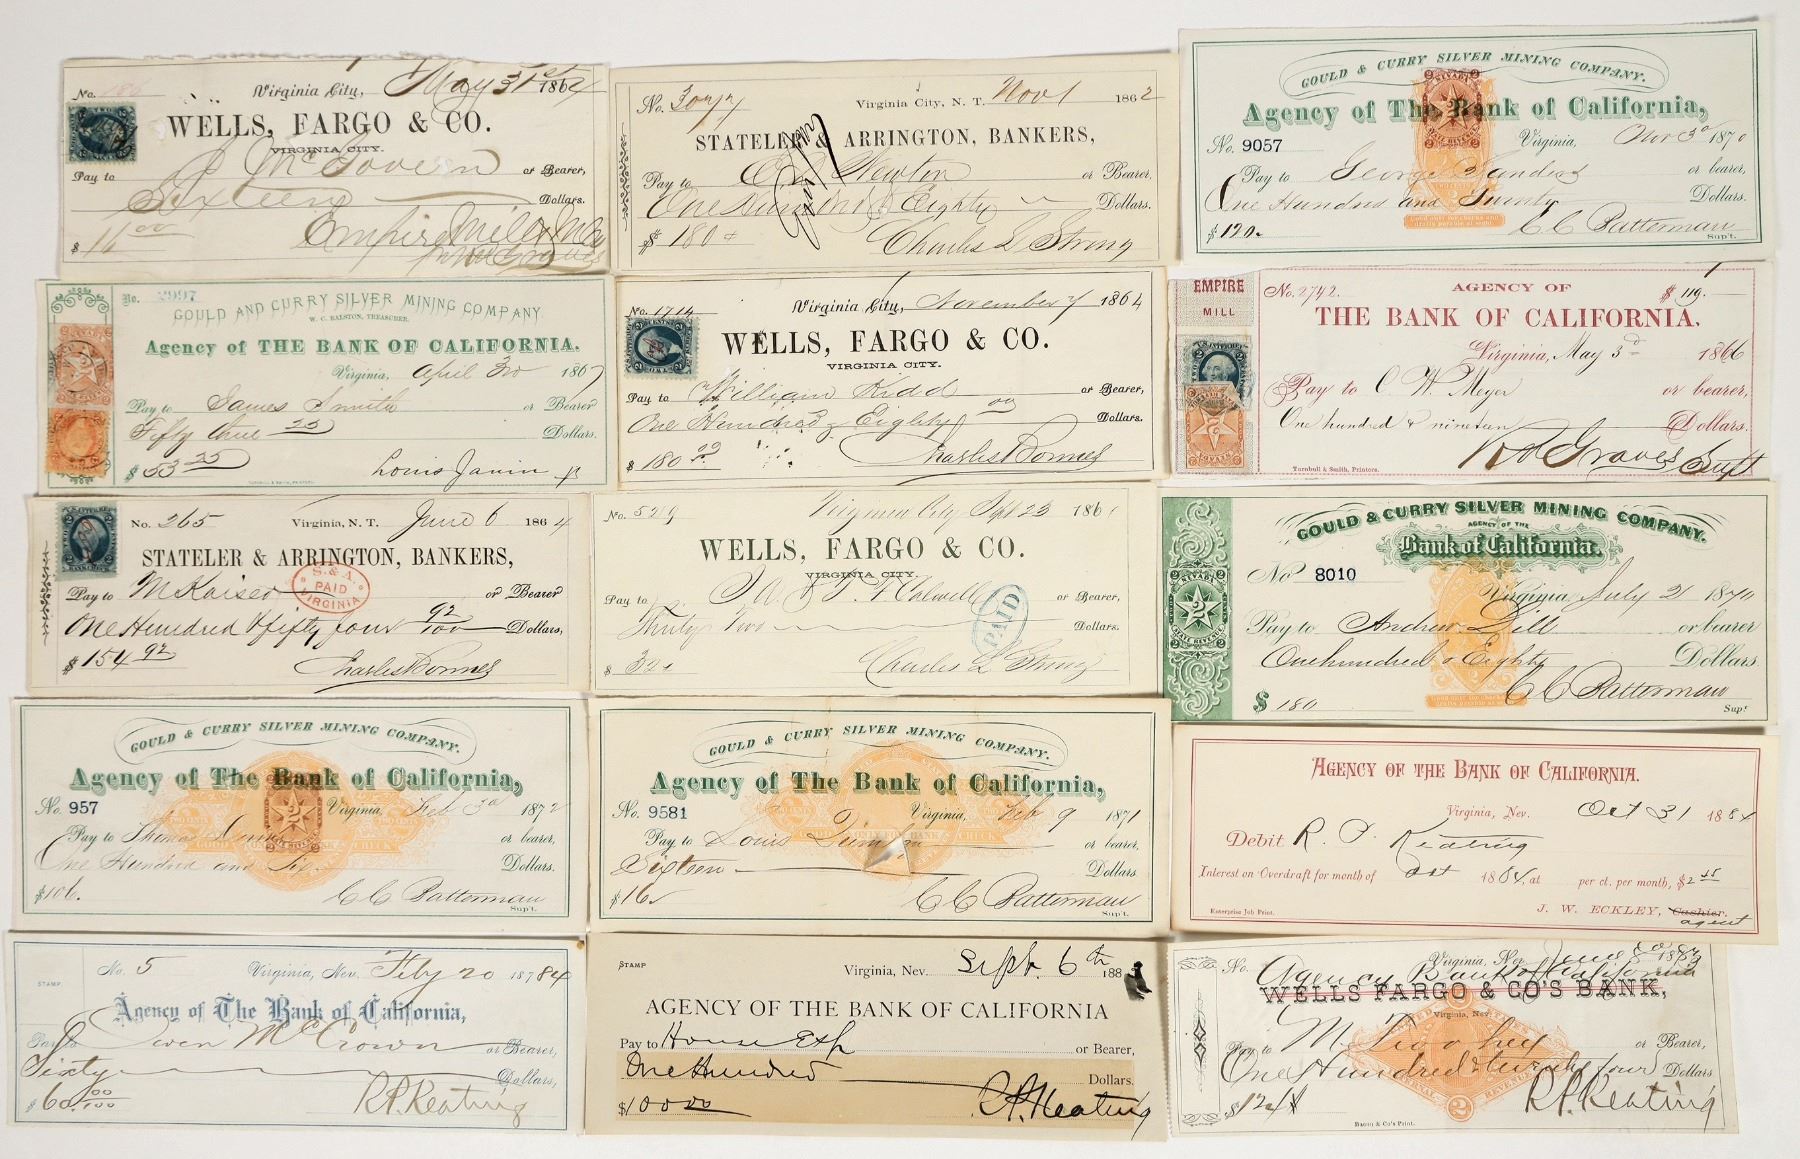 No. 186
Virginia City, May 31st 1864
WELLS, FARGO & CO.
VIRGINIA CITY.
Pay to J McGovern or Bearer,
Sixteen Dollars.
$ 16 00
Empire Mill & M Co

No. 3077
Virginia City, N. T. Nov 1 1862
STATELER & ARRINGTON, BANKERS,
Pay to Newton or Bearer,
One Hundred & Eighty Dollars.
$ 180
Charles L Strong

GOULD & CURRY SILVER MINING COMPANY.
Agency of The Bank of California,
No. 9057 Virginia, Nov 3d 1870
Pay to George Sanders or bearer,
One Hundred and Twenty Dollars.
$ 120.
C C Batterman
Sup't.

No. 2997
GOULD AND CURRY SILVER MINING COMPANY
W. C. RALSTON, TREASURER.
Agency of THE BANK OF CALIFORNIA.
Virginia, April 3d 1867
Pay to James Smith or Bearer
Fifty three 25 Dollars.
$ 53 25
Louis Janin Jr

No. 1714
Virginia City, November 7 1864
WELLS, FARGO & CO.
VIRGINIA CITY.
Pay to William Kidd or Bearer,
One Hundred & Eighty Dollars.
$ 180
Charles Bonner

EMPIRE
MILL
No. 2742. AGENCY OF $ 119.
THE BANK OF CALIFORNIA.
Virginia, May 3d 1866
Pay to C W Meyer or bearer,
One hundred & nineteen Dollars.
Graves Supt
Turnbull & Smith, Printers.

No. 265 Virginia, N. T. June 6 1864
STATELER & ARRINGTON, BANKERS,
Pay to McKaiser or Bearer
One Hundred & fifty four 92/100 Dollars,
$ 154 92
Charles Bonner
S. & A.
PAID
VIRGINIA

No. 5219 Virginia City Sept 23 186
WELLS, FARGO & CO.
VIRGINIA CITY.
Pay to Calwell or Bearer,
Thirty Two Dollars.
$ 32
Charles L Strong
PAID

GOULD & CURRY SILVER MINING COMPANY.
AGENCY OF THE
Bank of California.
No 8010 Virginia July 2 1870
Pay to Andrew Dill or bearer
One hundred & Eighty Dollars
$ 180
C C Batterman
Supt

GOULD & CURRY SILVER MINING COMPANY.
Agency of The Bank of California,
No. 957 Virginia, Feb 3d 1872
Pay to Thomas or bearer,
One Hundred and Six Dollars.
$ 106.
C C Batterman
Sup't.

GOULD & CURRY SILVER MINING COMPANY.
Agency of The Bank of California,
No. 9581 Virginia, Feb 9 1871
Pay to Louis or bearer,
Sixteen Dollars
$ 16
C C Batterman
Sup't.

AGENCY OF THE BANK OF CALIFORNIA.
Virginia, Nev. Oct 31 1884
Debit R. P. Keating
Interest on Overdraft for month of Oct 1884, at per ct. per month, $2 45
J. W. ECKLEY, Cashier.
agent
Enterprise Job Print.

STAMP
No. 5 Virginia, Nev. Feby 20 187884
Agency of The Bank of California,
Pay to Owen McCrown or Bearer,
Sixty Dollars,
$ 60.00/100
R.P. Keating

STAMP
Virginia, Nev. Sept. 6th 188
AGENCY OF THE BANK OF CALIFORNIA
Pay to House Exp or Bearer,
One Hundred Dollars.
$ 100 00
R.P. Keating

No. Virginia, Nev. June 188
Agency Bank of California
WELLS FARGO & CO'S BANK,
Virginia, Nev.
Pay to M. Twohey or Bearer
One Hundred & twenty four Dollars
$ 124
R.P. Keating
Bacon & Co's Print.